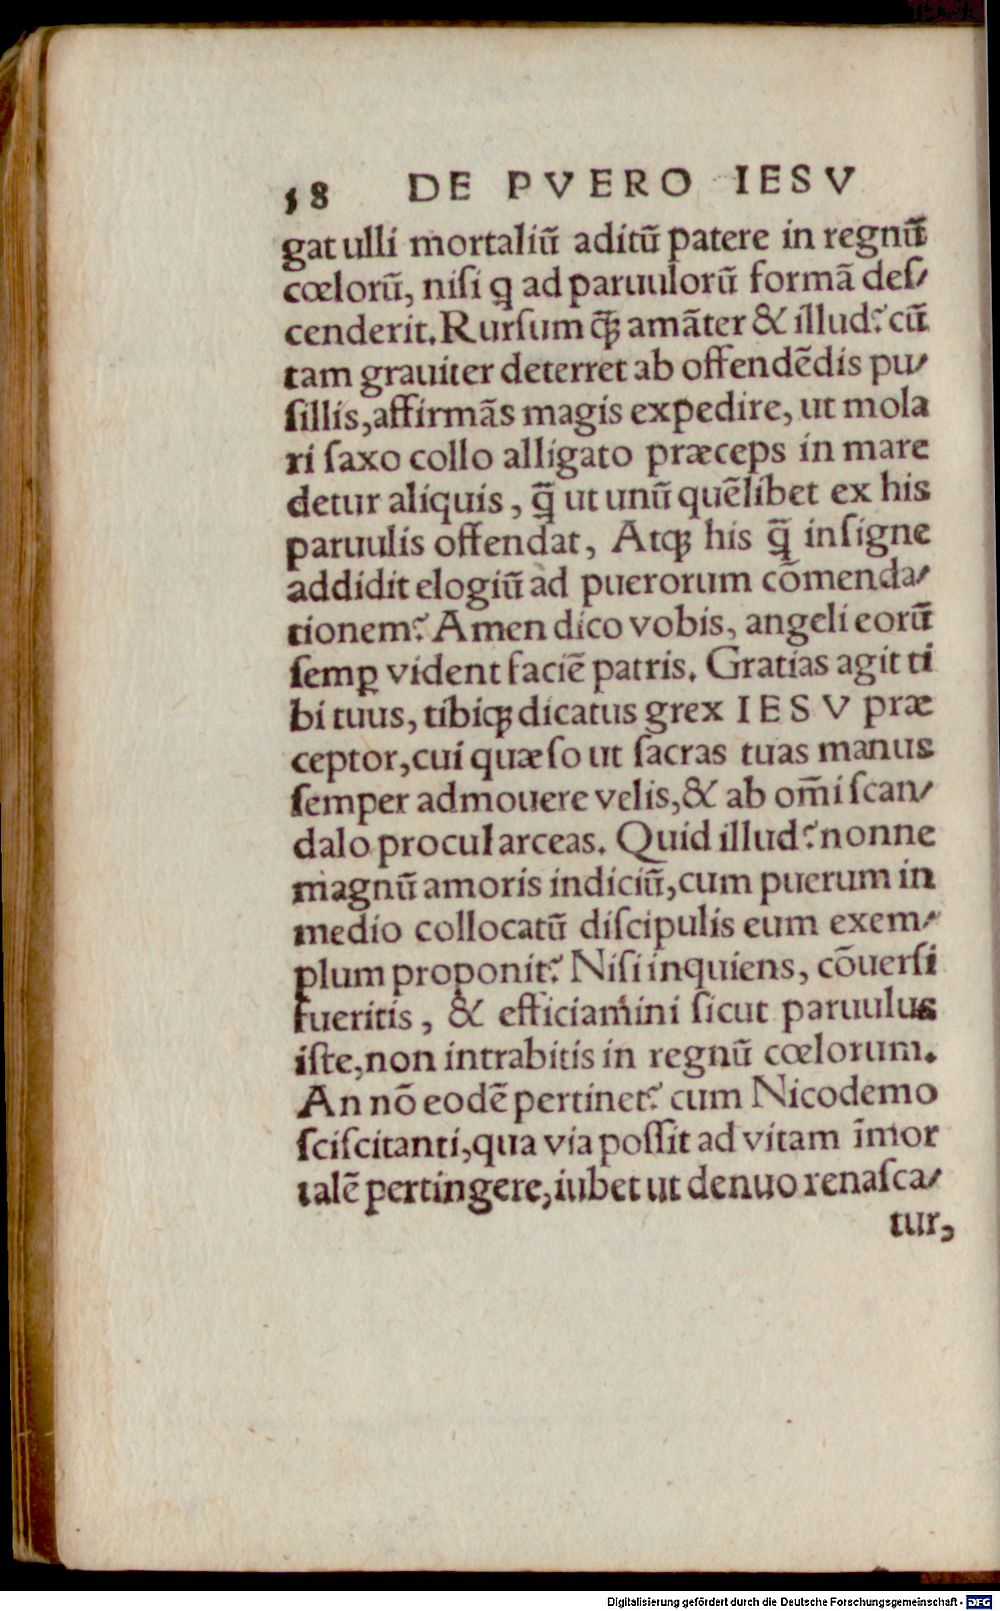 18 DE PVERO IESV
gat ulli mortaliū aditū patere in regnū
cœlorū, nisi q ad paruulorū formā des/
cenderit. Rursum q̄ꝫ amāter & illud? cū
tam grauiter deterret ab offendēdis pu/
sillis, affirmās magis expedire, ut mola
ri saxo collo alligato præceps in mare
detur aliquis, q̄ ut unū quēlibet ex his
paruulis offendat, Atqꝫ his q̄ insigne
addidit elogiū ad puerorum cōmenda/
tionem? Amen dico vobis, angeli eorū
semꝑ vident faciē patris. Gratias agit ti
bi tuus, tibiqꝫ dicatus grex IESV præ
ceptor, cui quæso ut sacras tuas manus
semper admouere velis, & ab om̄i scan/
dalo procul arceas. Quid illud? nonne
magnū amoris indiciū, cum puerum in
medio collocatū discipulis eum exem/
plum proponit? Nisi inquiens, cōuersi
fueritis, & efficiamini sicut paruulus
iste, non intrabitis in regnū cœlorum.
An nō eodē pertinet? cum Nicodemo
sciscitanti, qua via possit ad vitam īmor
talē pertingere, iubet ut denuo renasca/
tur,
Digitalisierung gefördert durch die Deutsche Forschungsgemeinschaft - DFG